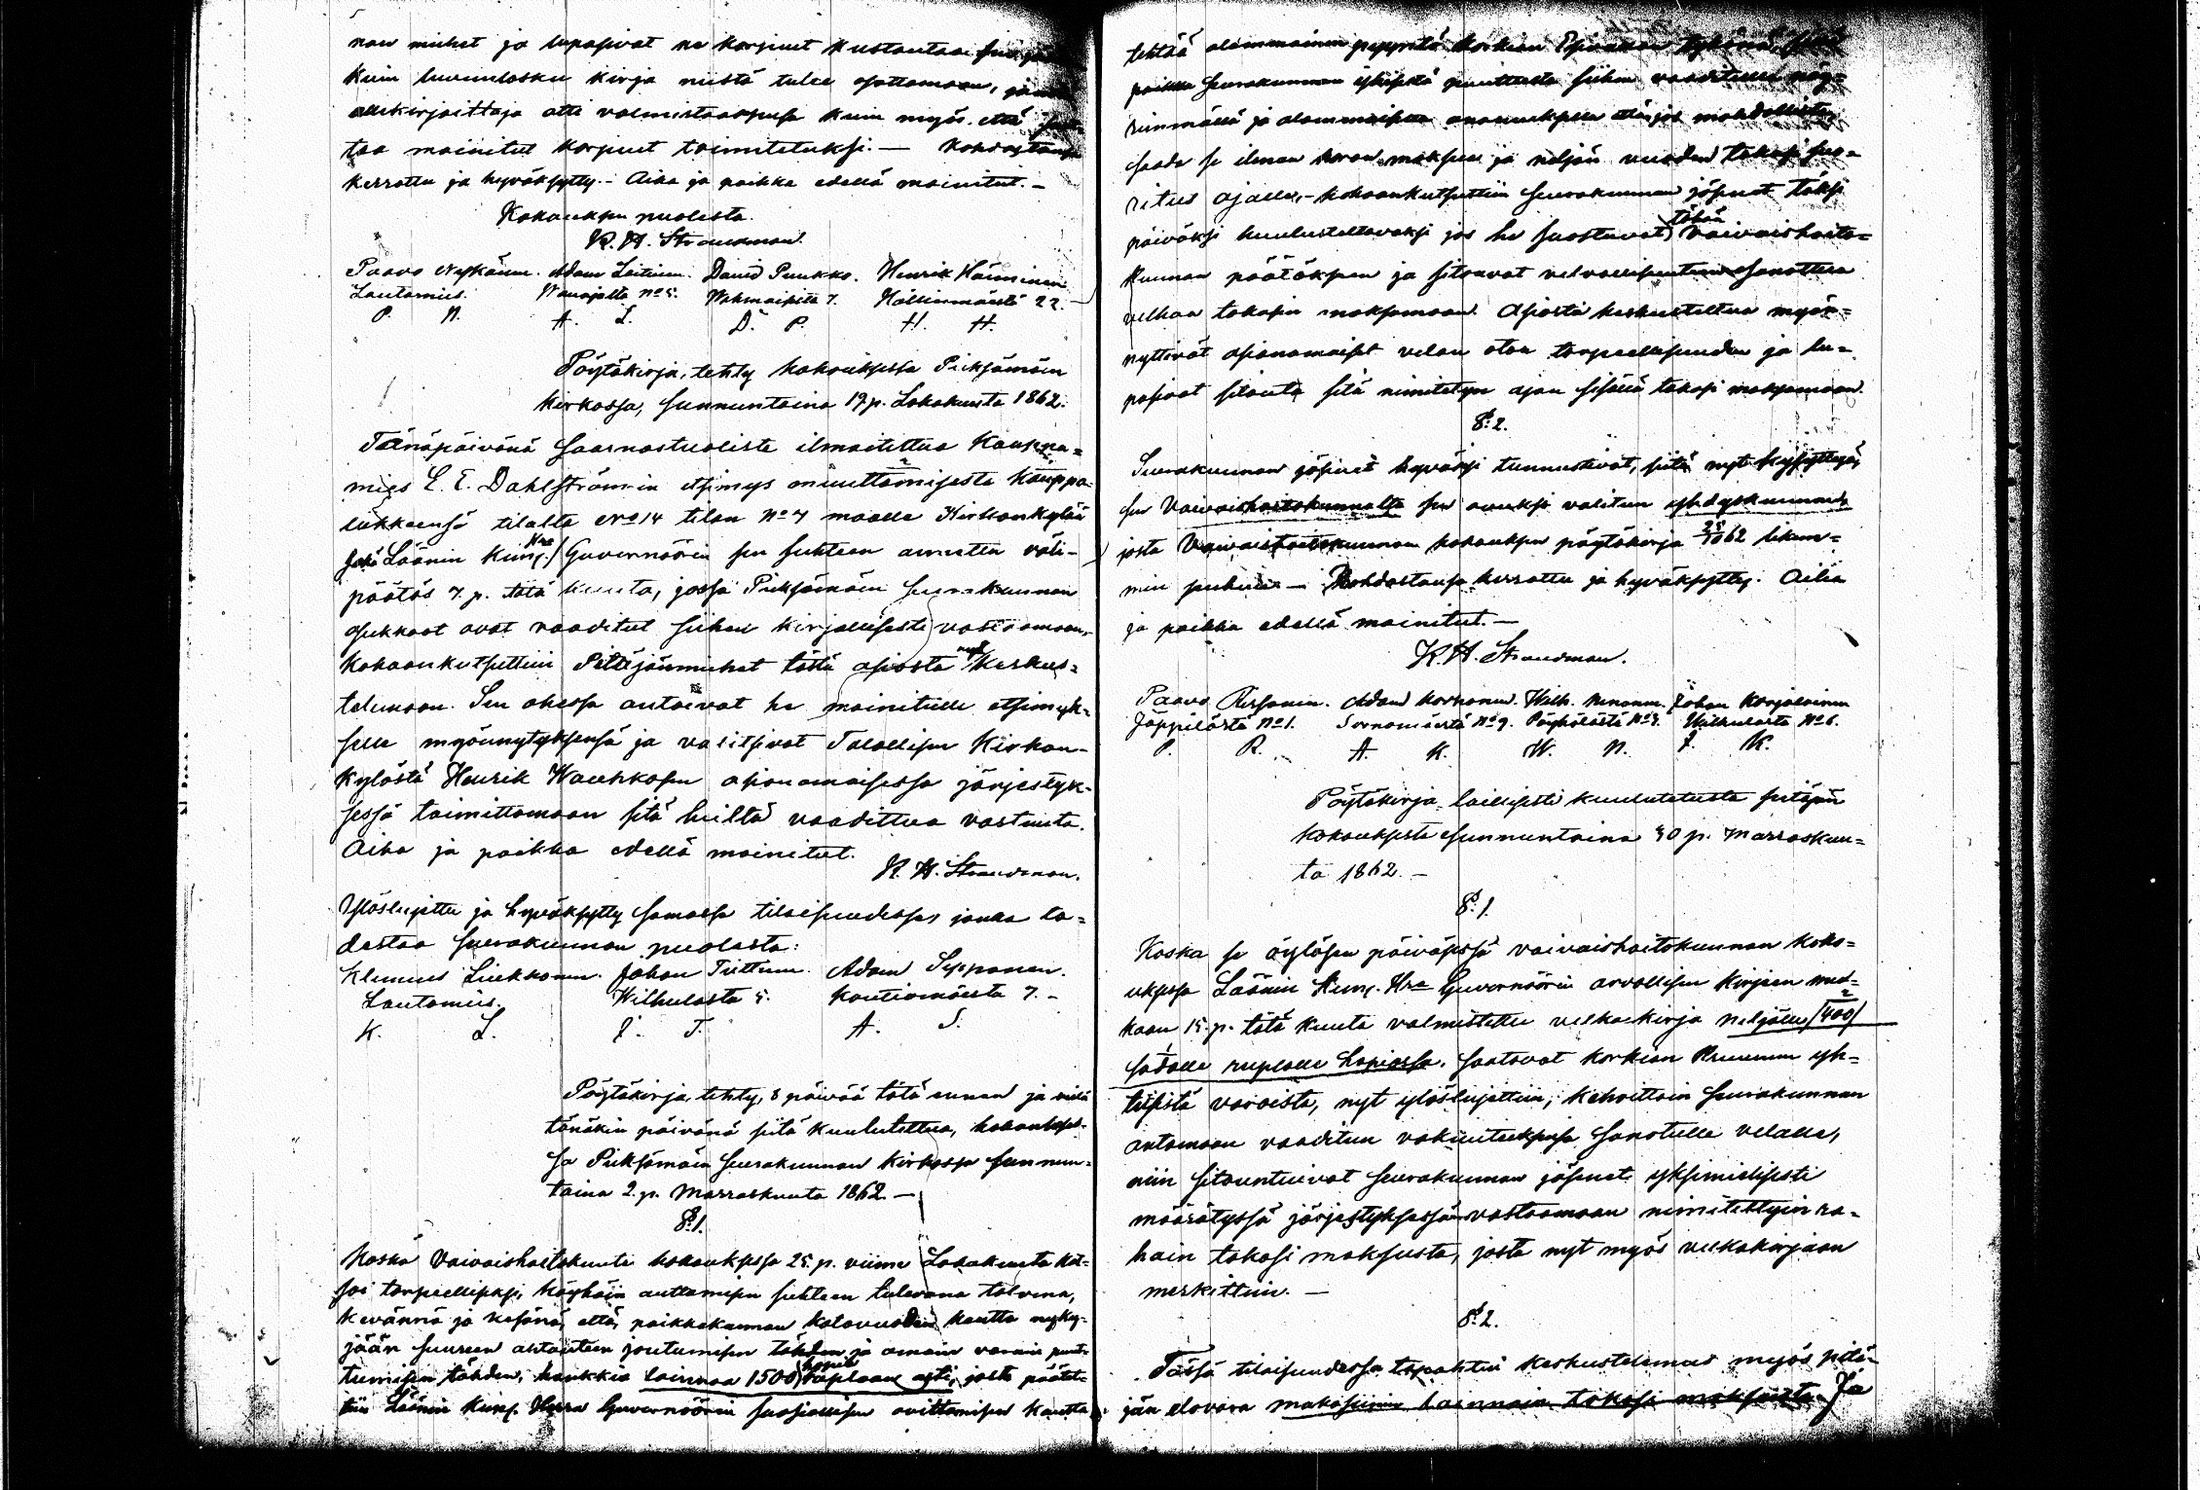 nan miehet ja lupasivat ne korjuut kustantaa
kuin luvunlasku kirja niistä tulee osottamaan,
allekirjoittaja otti valmistaaksensa kuin myös että
taa mainitut korjuut toimitetuksi. — Kohdastansa
kerrottu ja hyväksytty. - Aika ja paikka edellä mainitut. -
Kokouksen puolesta.
K. H. Strandman.
Paavo Nykänen. Adam Laitinen. David Puukko. Henrik Hänninen
Lautamies. Nº 5. 7. 22.
P. N. A. L. D. P. H. H.
Pöytäkirja, tehty kokouksessa Pieksämäen
kirkossa, sunnuntaina 19 p. Lokakuuta 1862.
Tänäpäivänä saarnastuolista ilmoitettua Kauppa-
mies E. E. Dahlströmin etsimys muuttamisesta kauppa-
liikkeensä tilalta Nº 14 tilan Nº 7 maalle Kirkonkylää
Läänin Kung. Hra Guvernöörin sen suhteen annettu väli-
päätös 7. p. tätä kuuta, jossa Pieksämäen seurakunnan
asukkaat ovat vaaditut siihen kirjallisesti vastaamaan,
kokoonkutsuttiin Pitäjänmiehet tästä asiasta nyt keskus-
telemaan. Sen ohessa antoivat he mainitulle etsimyk-
selle myönnytyksensä ja valitsivat Talollisen Kirkon-
kylästä Henrik Wauhkosen asianomaisessa järjestyk-
sessä toimittamaan sitä heiltä vaadittua vastausta.
Aika ja paikka edellä mainitut.
K. H. Strandman.
Ylösluettu ja hyväksytty samassa tilaisuudessa, jonka to-
distaa seurakunnan puolesta:
Klemens Liukkonen. Johan Tiittanen. Adam Seppänen.
Lautamies. Wilhulasta 5. Kontiomäestä 7. -
K. L. J. T. A. S.
Pöytäkirja, tehty, 8 päivää tätä ennen ja vielä
tänäkin päivänä siitä kuulutettua, kokoukses-
sa Pieksämäen seurakunnan kirkossa sunnun-
taina 2. p. Marraskuuta 1862. —
§. 1.
Koska Vaivaishoitokunta kokouksessa 25. p. viime Lokakuuta kat-
soi tarpeelliseksi, köyhäin auttamisen suhteen tulevana talvena,
keväännä ja kesänä, että, paikkakunnan katovuoden kautta nyky-
jään suureen ahtauteen joutumisen tähden ja omain varain puut-
tumisen tähden, hankkia lainaa 1500 hopea ruplaan asti, josta päätet-
tiin Läänin Kung. Herra Guvernöörin suosiollisen avittamisen kautta
tehdä alammainen pyyntö korkean Esivallan tykönä,
paikka seurakunnan yhteistä puutteesta siihen vaaditulla nöy-
rimmällä ja alammaisella anomuksella että, jos mahdollista,
saada se ilman koron maksua ja neljän vuoden takasi suo-
ritus ajalla, - kokoonkutsuttiin seurakunnan jäsenet täksi
päiväksi kuulusteltavaksi jos he suostuvat tähän Vaivaishoito-
kunnan päätökseen ja sitouvat velvollisuuteen sanottua
velkaa takasin maksamaan. Asiasta keskusteltua myön-
nyttivät asianomaiset velan oton tarpeellisuuden ja lu-
pasivat sitouta sitä nimitetyn ajan sisällä takasi maksamaan.
§. 2.
Seurakunnan jäsenet hyväksi tunnustivat, siitä nyt kysyttyä,
sen Vaivaishoitokunnalta sen avuksi valitun yhdyskunnan,
josta Vaivaishoitokunnan kokouksen pöytäkirja 25/10 62 likem-
min puhuu. — Kohdastansa kerrottu ja hyväksytty. Aika
ja paikka edellä mainitut. —
K. H. Strandman.
Paavo Rissanen. Adam Korhonen. Wilh. Nenonen. Johan Karjalainen
Jäppilästä Nº 1. Nº 9. Pöyhölästä Nº 4. Wilhulasta Nº 6.
P. R. A. K. W. N. J. K.
Pöytäkirja laillisesti kuulutetusta pitäjän
kokouksesta sunnuntaina 30 p. Marraskuu-
ta 1862. —
§. 1.
Koska se öylösen päiväsessä vaivaishoitokunnan koko-
uksessa Läänin Kung. Hra Guvernöörin arvollisen kirjeen mu-
kaan 15. p. tätä kuuta valmistettu velkakirja neljälle /400/
sadalle ruplalle hopiassa, saatavat korkian Kruunun yh-
teisistä varoista, nyt ylösluettiin, kehoittain seurakunnan
antamaan vaaditun vakuutuksensa sanotulle velalle,
niin sitountuivat seurakunnan jäsenet yksimielisesti
määrätyssä järjestyksessä vastaamaan nimitettyin ra-
hain takasi maksusta, josta nyt myös velkakirjaan
merkittiin. —
§. 2.
Tässä tilaisuudessa tapahtui keskustelemus myös pitä-
jän elovara makasiinin lainain takasi maksusta. Ja